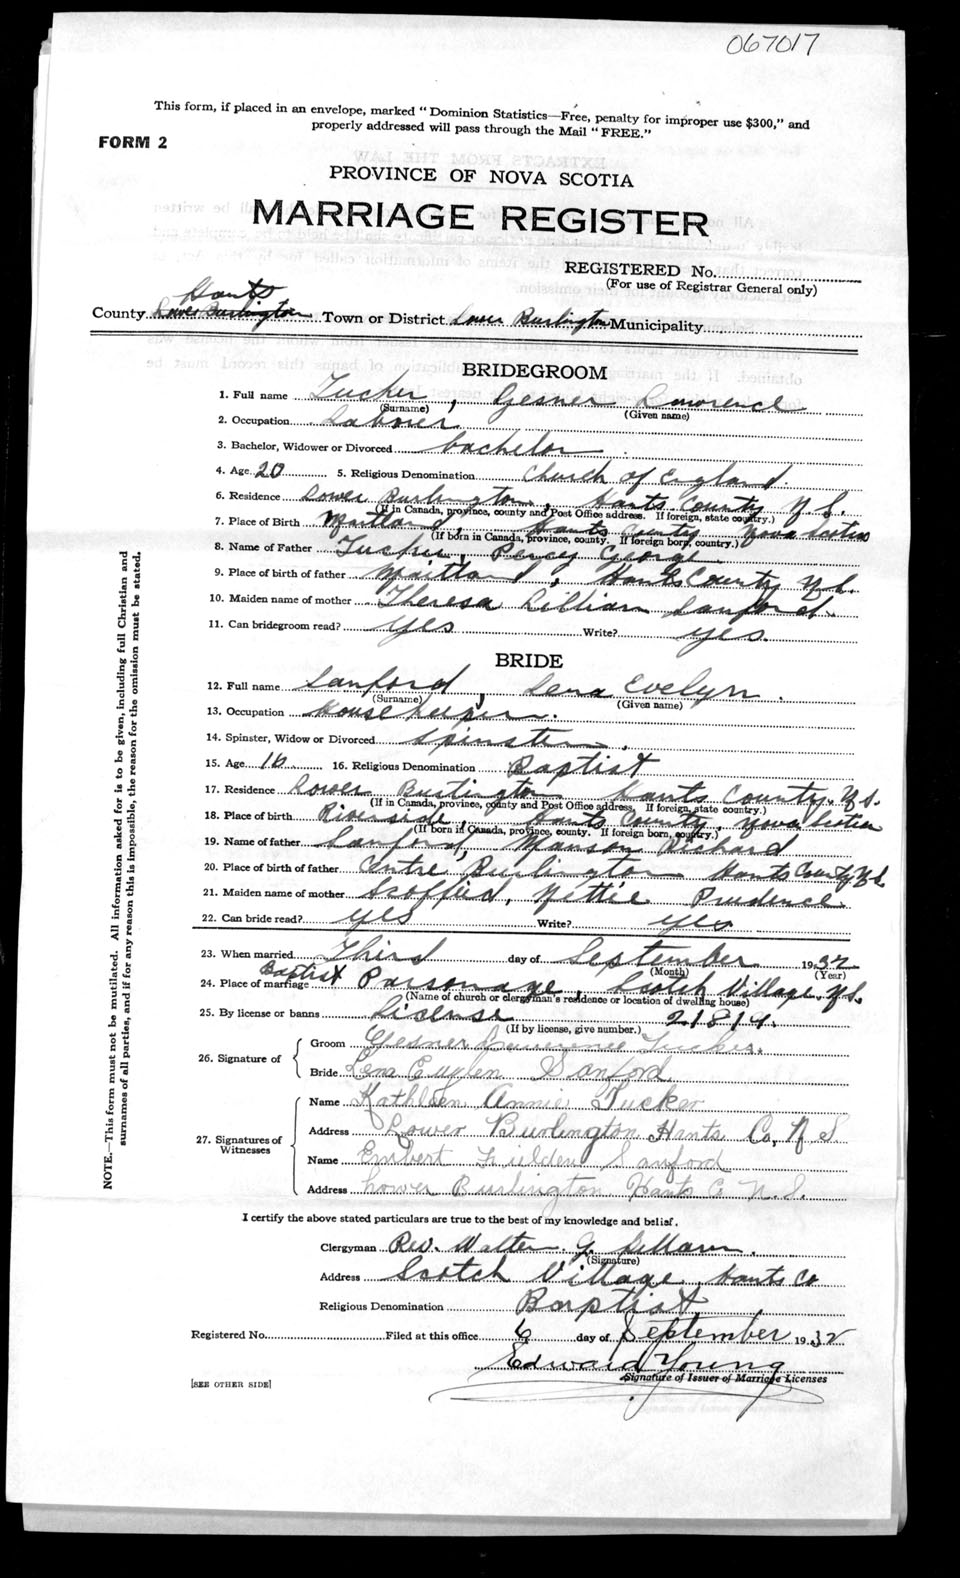 067017
This form, if placed in an envelope, marked "Dominion Statistics—Free, penalty for improper use $300," and
properly addressed will pass through the Mail "FREE."
FORM 2
PROVINCE OF NOVA SCOTIA
MARRIAGE REGISTER
REGISTERED No.
(For use of Registrar General only)
Hants
County Lower Burlington Town or District Lower Burlington Municipality
BRIDEGROOM
1. Full name Tucker, Gesner Lawrence
(Surname) (Given name)
2. Occupation Laborer
3. Bachelor, Widower or Divorced bachelor
4. Age 20 5. Religious Denomination Church of England.
6. Residence Lower Burlington, Hants County N.S.
(If in Canada, province, county and Post Office address. If foreign, state country.)
7. Place of Birth Maitland, Hants County Nova Scotia
(If born in Canada, province, county. If foreign born, country.)
8. Name of Father Tucker, Percy George
9. Place of birth of father Maitland, Hants County N.S.
10. Maiden name of mother Theresa Lillian Sanford.
11. Can bridegroom read? yes Write? yes.
BRIDE
12. Full name Sanford, Lena Evelyn.
(Surname) (Given name)
13. Occupation Housekeeper.
14. Spinster, Widow or Divorced Spinster.
15. Age 16 16. Religious Denomination Baptist
17. Residence Lower Burlington Hants County, N.S.
(If in Canada, province, county and Post Office address, If foreign, state country.)
18. Place of birth Riverside, Hants County, Nova Scotia
(If born in Canada, province, county. If foreign born, country.)
19. Name of father Sanford, Manson Richard
20. Place of birth of father Centre Burlington Hants County N.S.
21. Maiden name of mother Nettie Prudence
22. Can bride read? yes Write? yes
23. When married Third day of September 1932
(Month) (Year)
24. Place of marriage Baptist Parsonage, Scotch Village, N.S.
(Name of church or clergyman's residence or location of dwelling house)
25. By license or banns License 21819.
(If by license, give number.)
26. Signature of
Groom Gesner Lawrence Tucker.
Bride Lena Sanford
27. Signatures of Witnesses
Name Kathleen Annie Tucker
Address Lower Burlington Hants Co, N S
Name Sanford
Address Lower Burlington Hants Co N.S.
I certify the above stated particulars are true to the best of my knowledge and belief.
Clergyman Rev. Walter G.
(Signature)
Address Scotch Village, Hants Co
Religious Denomination Baptist
Registered No. Filed at this office 6 day of September 1932
Edward Young
Signature of Issuer of Marriage Licenses
[SEE OTHER SIDE]
NOTE.—This form must not be mutilated. All information asked for is to be given, including full Christian and
surnames of all parties, and if for any reason this is impossible, the reason for the omission must be stated.